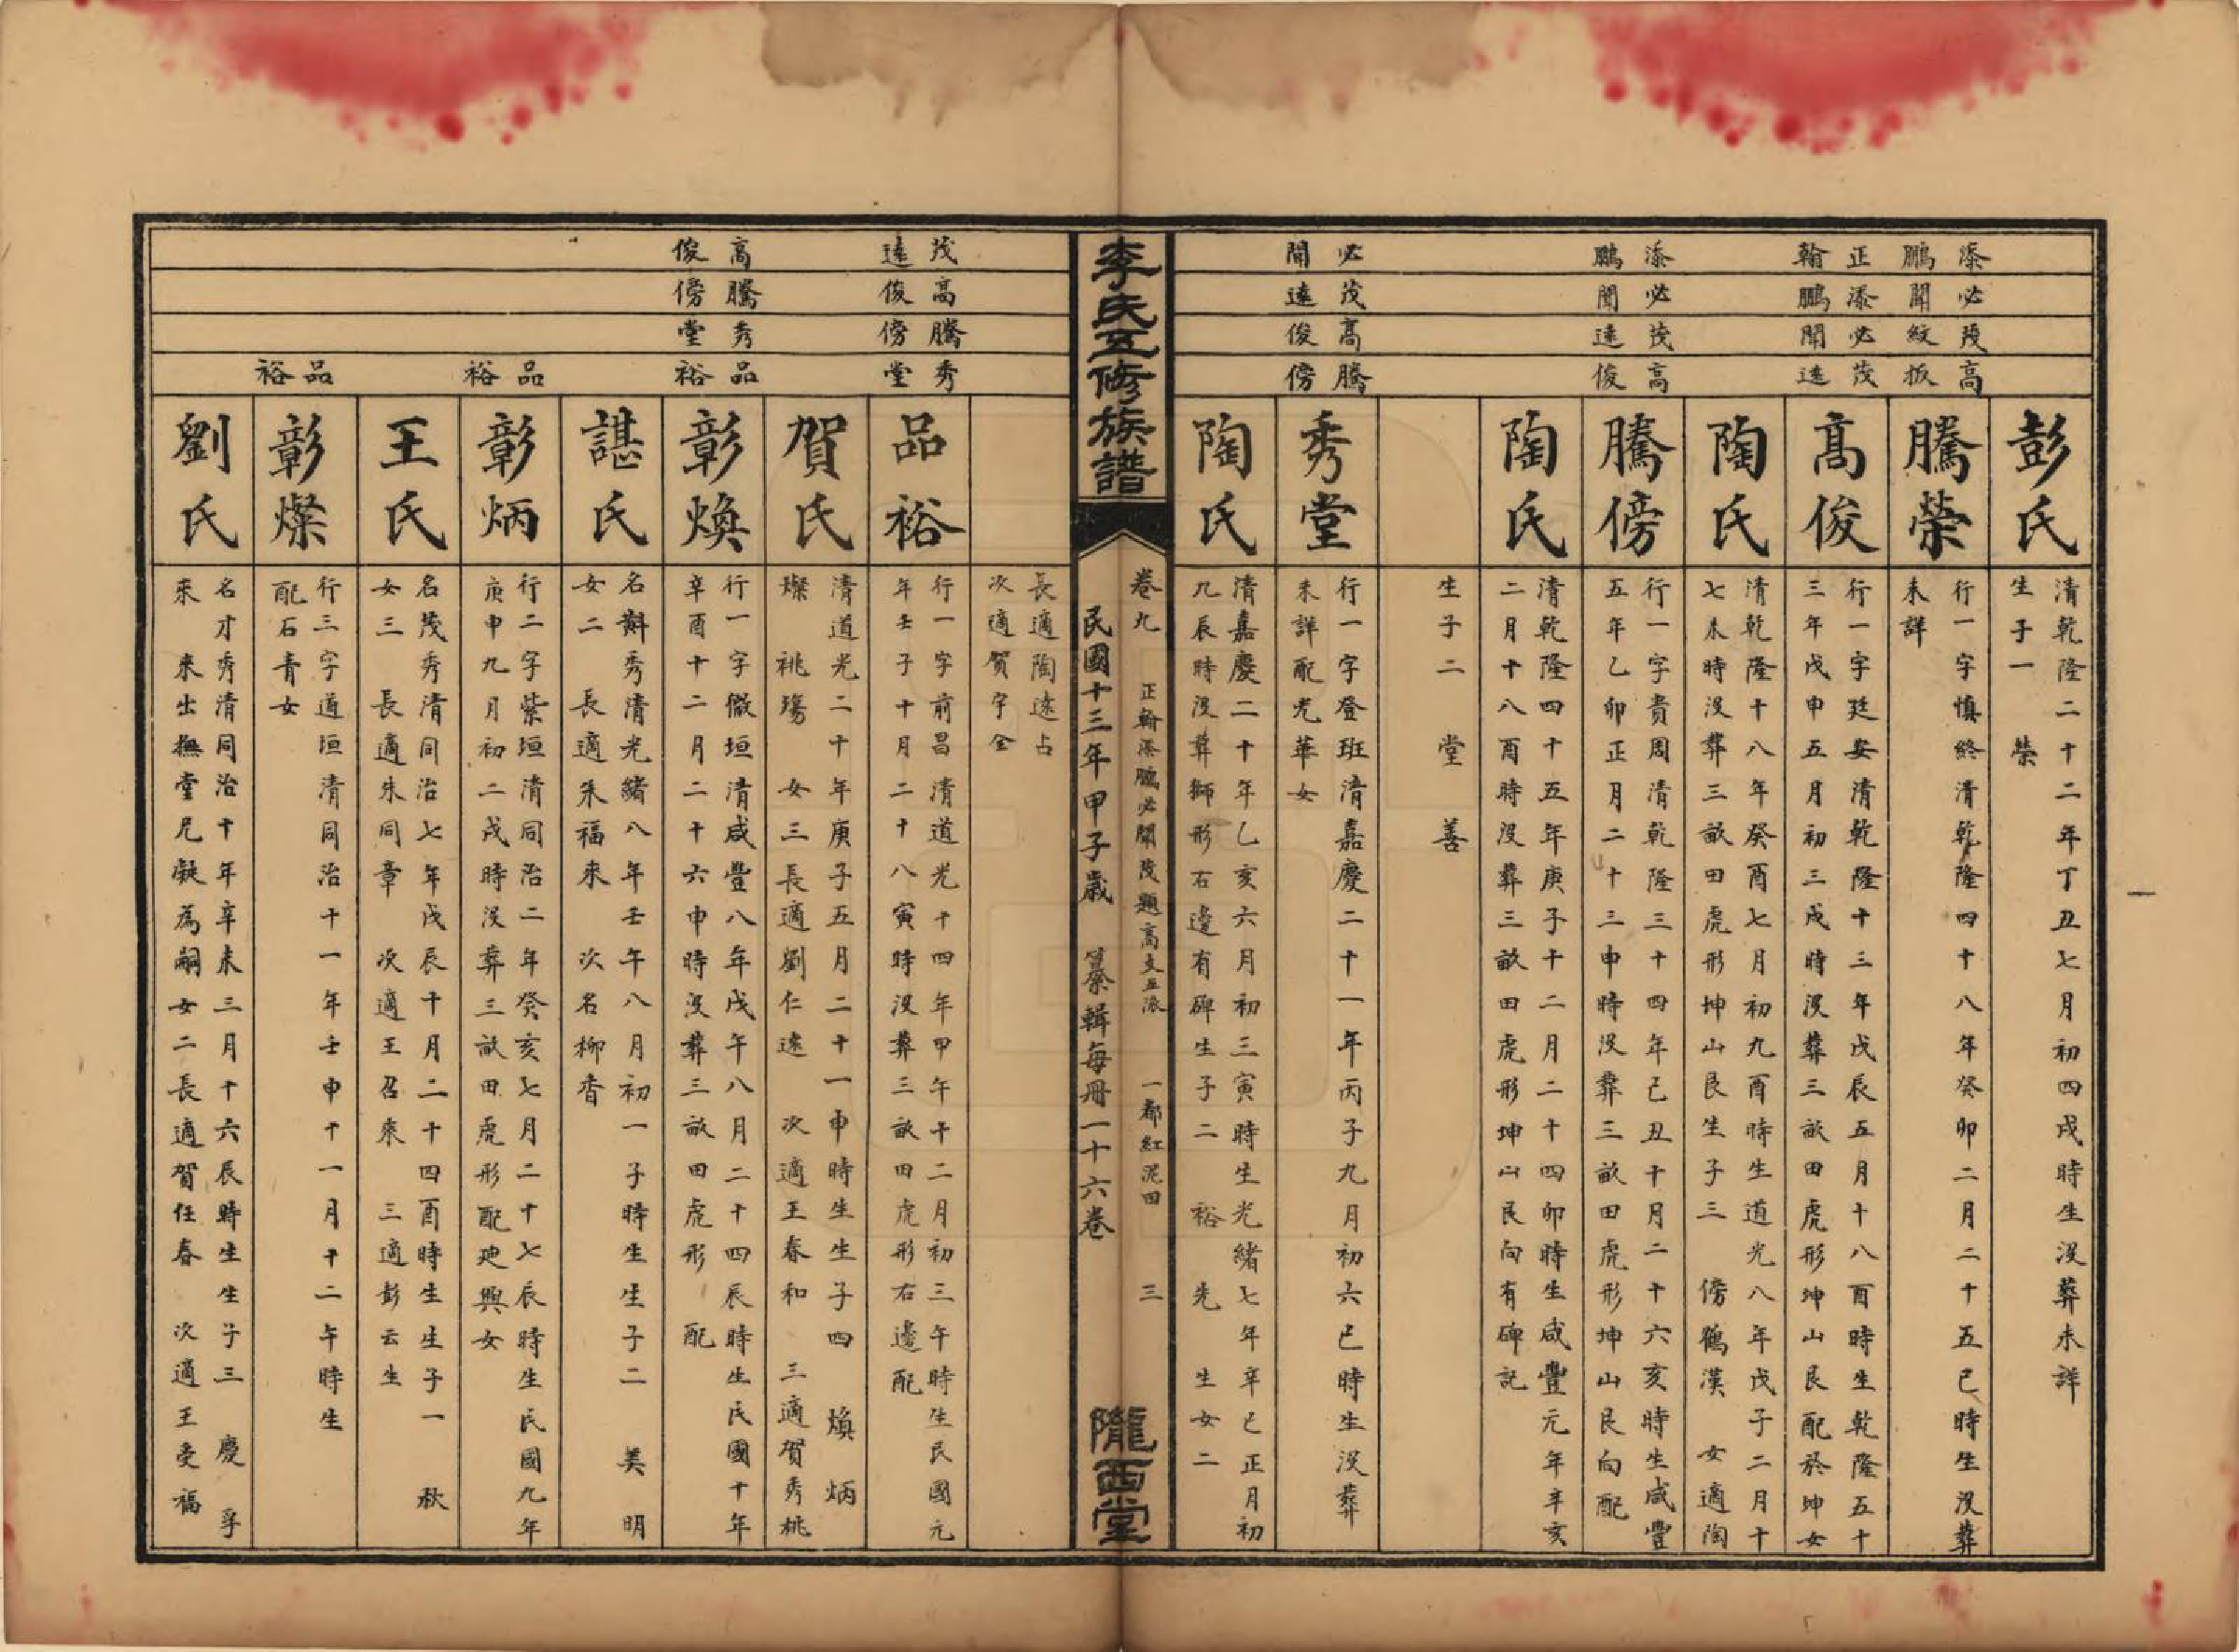 添鵬 必聞 茂紋 高板
彭氏
清乾隆二十二年丁丑七月初四戌時生沒葬未詳
生子一 榮
騰榮
行一字慎終清乾隆四十八年癸卯二月二十五巳時生沒葬
未詳
正翰 添鵬 必聞 茂遠
高俊
行一字廷安清乾隆十三年戊辰五月十八酉時生乾隆五十
三年戊申五月初三戌時沒葬三畝田虎形坤山艮配於坤女
陶氏
清乾隆十八年癸酉七月初九酉時生道光八年戊子二月十
七未時沒葬三畝田虎形坤山艮生子三 傍鶴漢 女適陶
添鵬 必聞 茂遠 高俊
騰傍
行一字貴周清乾隆三十四年己丑十月二十六亥時生咸豐
五年乙卯正月二十三申時沒葬三畝田虎形坤山艮向配
陶氏
清乾隆四十五年庚子十二月二十四卯時生咸豐元年辛亥
二月十八酉時沒葬三畝田虎形坤山艮向有碑記
生子二 堂 善
必聞 茂遠 高俊 騰傍
秀堂
行一字登班清嘉慶二十一年丙子九月初六巳時生沒葬
未詳配光華女
陶氏
清嘉慶二十年乙亥六月初三寅時生光緒七年辛巳正月初
九辰時沒葬獅形右邊有碑生子二 裕 先 生女二
李氏五修族譜
卷九 正翰添鵬必聞茂題高文五派 一都紅泥田 三
民國十三年甲子歲 纂輯每冊一十六卷
隴西堂
長適陶遠占
次適賀字全
茂遠 高俊 騰傍 秀堂
品裕
行一字前昌清道光十四年甲午十二月初三午時生民國元
年壬子十月二十八寅時沒葬三畝田虎形右邊配
賀氏
清道光二十年庚子五月二十一申時生生子四 煥 炳
燦 祧瑒 女三長適劉仁遠 次適王春和 三適賀秀桃
高俊 騰傍 秀堂 品裕
彰煥
行一字微垣清咸豐八年戊午八月二十四辰時生民國十年
辛酉十二月二十六申時沒葬三畝田虎形 配
諶氏
名斠秀清光緒八年壬午八月初一子時生生子二 美 明
女二 長適朱福來 次名柳香
品裕
彰炳
行二字紫垣清同治二年癸亥七月二十七辰時生民國九年
庚申九月初二戌時沒葬三畝田虎形配廸興女
王氏
名茂秀清同治七年戊辰十月二十四酉時生生子一 秋
女三 長適朱同章 次適王召來 三適彭云生
品裕
彰燦
行三字道垣清同治十一年壬申十一月十二午時生
配石青女
劉氏
名才秀清同治十年辛未三月十六辰時生生子三 慶 孚
來 來出撫堂兄凝為嗣女二長適賀任春 次適王受福